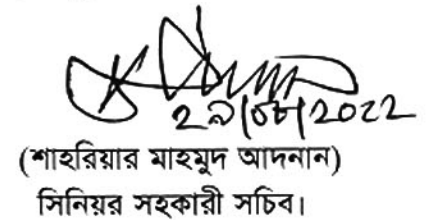 ২৯/০৮/2022
(শাহরিয়ার মাহমুদ আদনান)
সিনিয়র সহকারী সচিব।